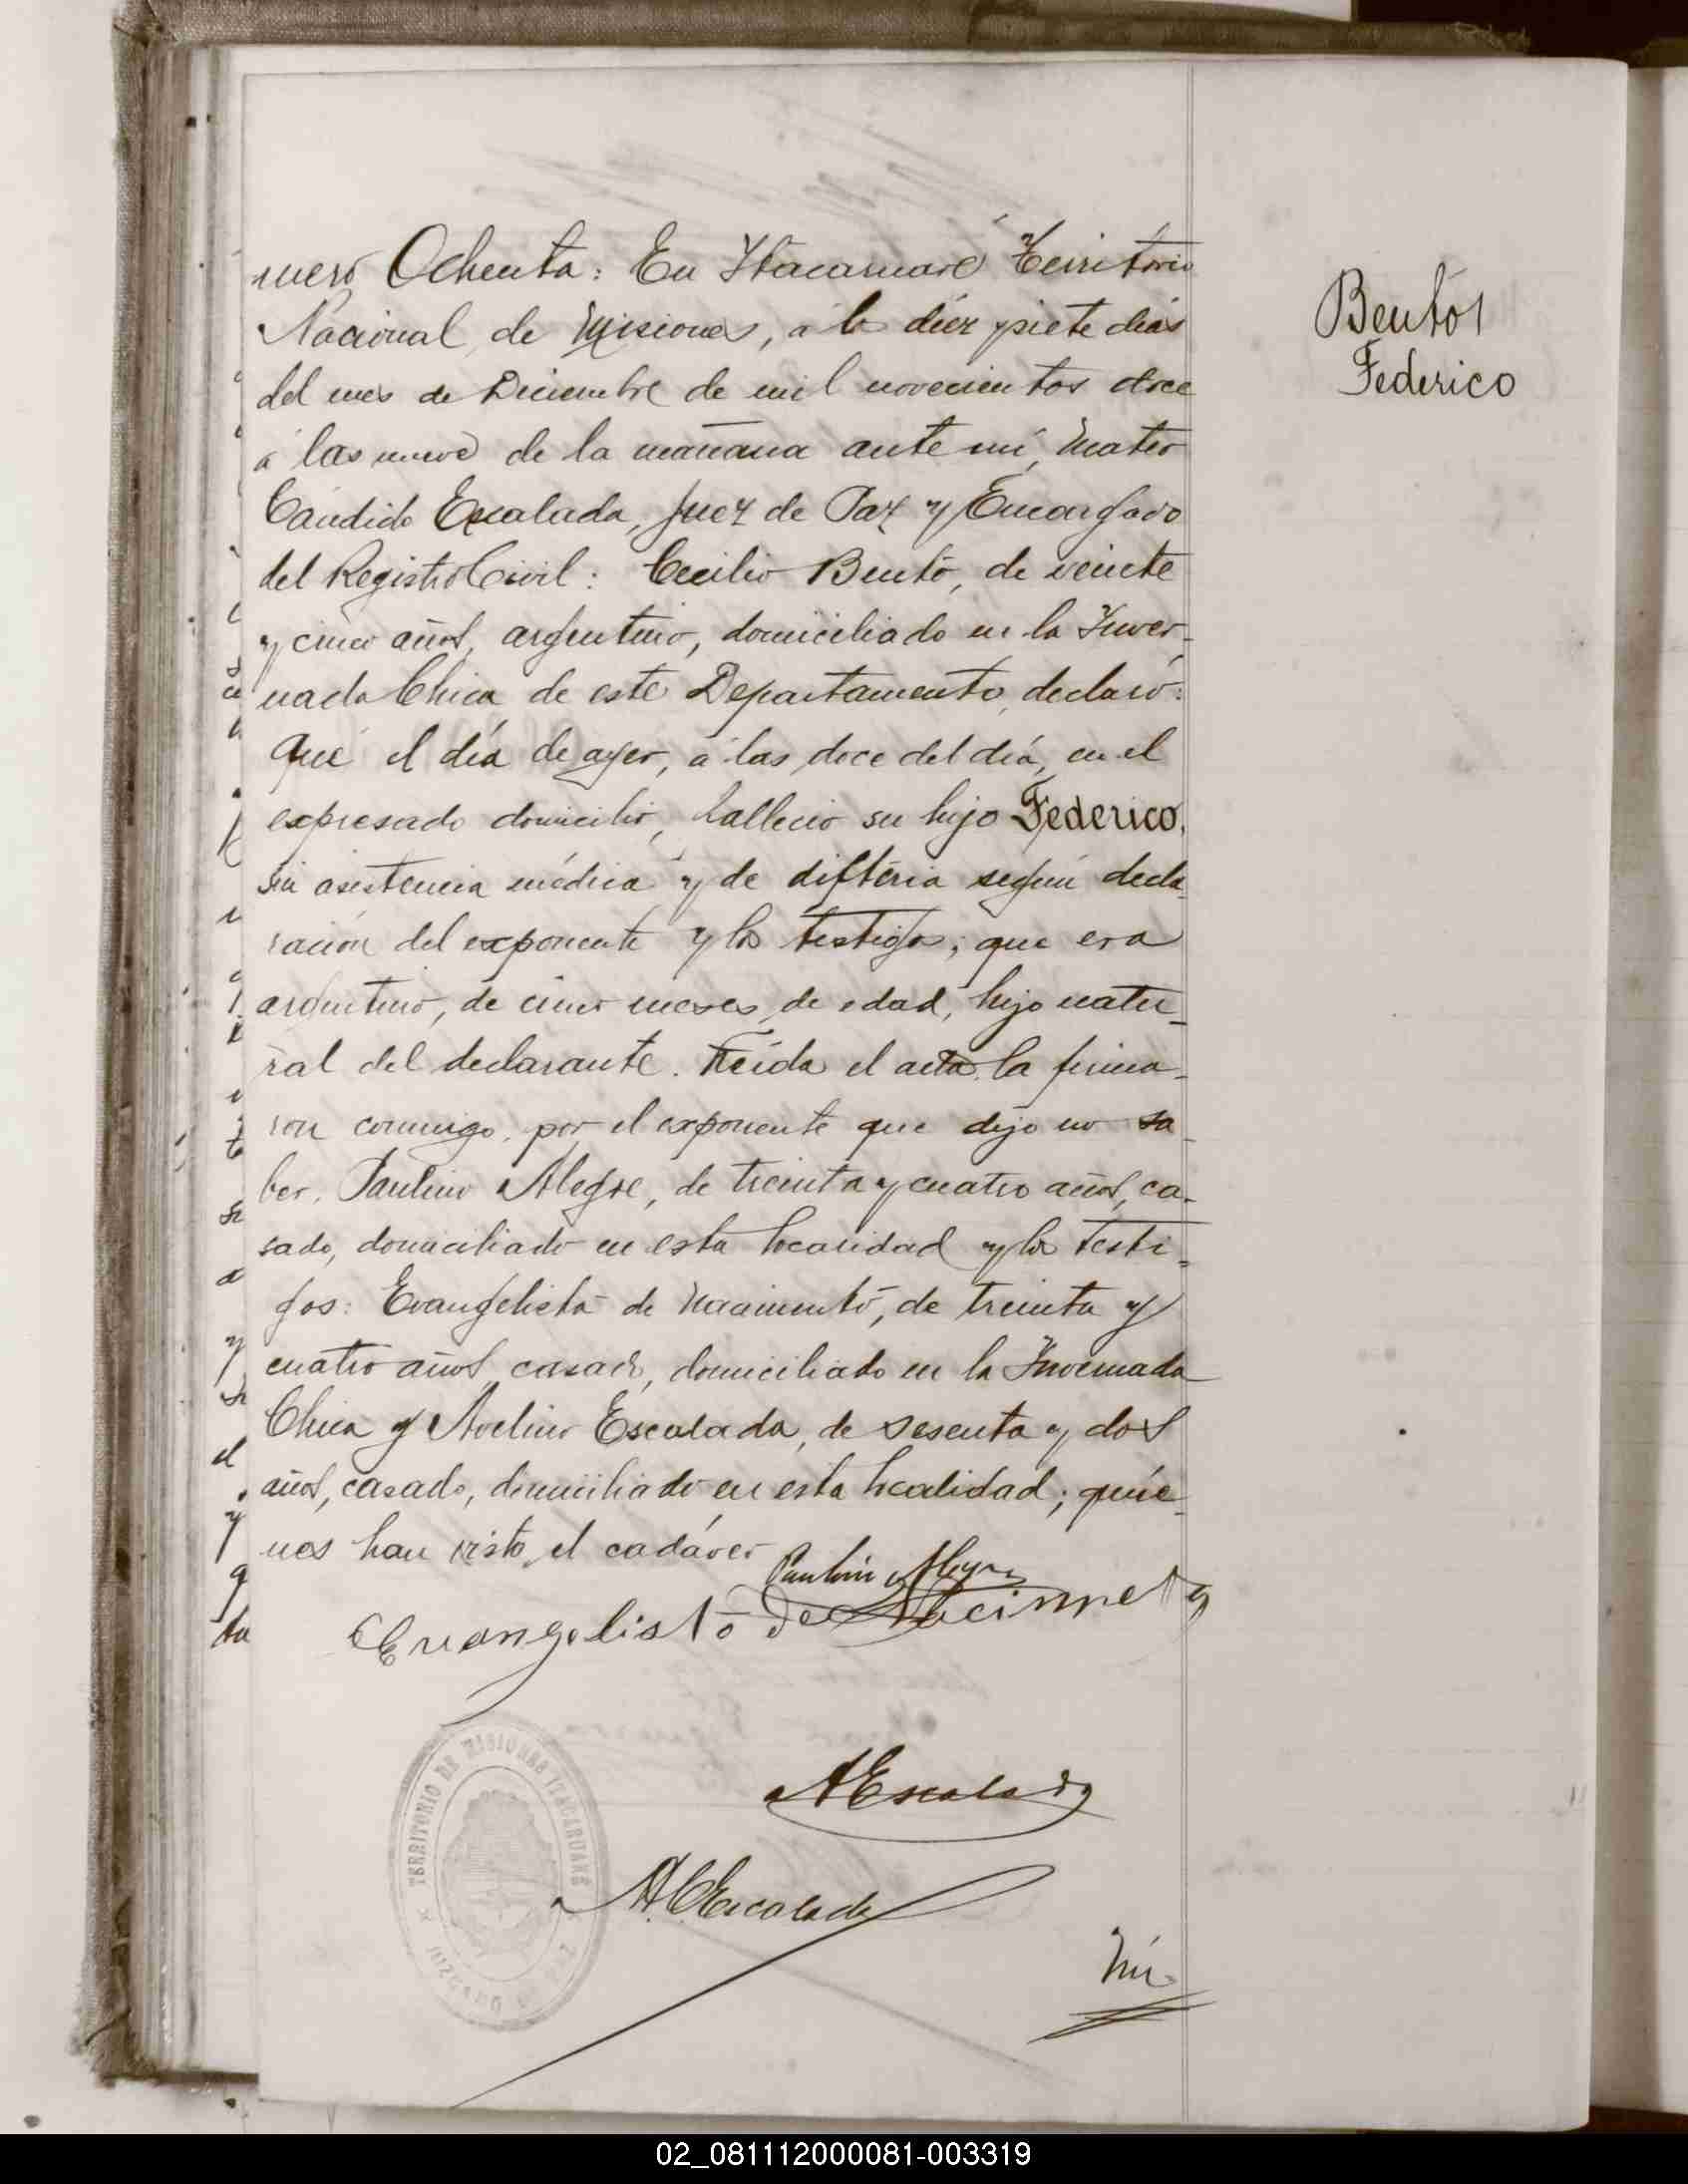 mero Ochenta: En Itacaruaré Territorio
Nacional de Misiones, á los diez y siete dias
del mes de Diciembre de mil novecientos doce
á las nueve de la mañana ante mí, Mateo
Cándido Escalada, Juez de Paz y Encargado
del Registro Civil: Cecilio Bentó, de veinte
y cinco años, argentino, domiciliado en la Inver-
nada Chica de este Departamento, declaró:
Que el día de ayer, á las doce del día, en el
expresado domicilio, falleció su hijo Federico,
sin asistencia médica y de difteria según decla
ración del exponente y los testigos; que era
argentino, de cinco meses de edad, hijo natu-
ral del declarante. Leida el acta, la firma-
ron conmigo, por el exponente que dijo no sa
ber, Paulino Alegre, de treinta y cuatro años, ca-
sado, domiciliado en esta localidad y los testi-
gos: Evangelista de Nacimento, de treinta y
cuatro años, casado, domiciliado en la Invernada
Chica y Avelino Escalada, de sesenta y dos
años, casado, domiciliado en esta localidad; quie-
nes han visto el cadáver
Paulino Alegre
Evangelisto de Nacimneto
AEscalada
M.C.Escalada
Nú
Bentós
Federico
TERRITORIO DE MISIONES ITACARUARÉ
02_081112000081-003319